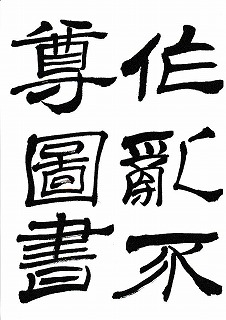 作亂不
尊圖書